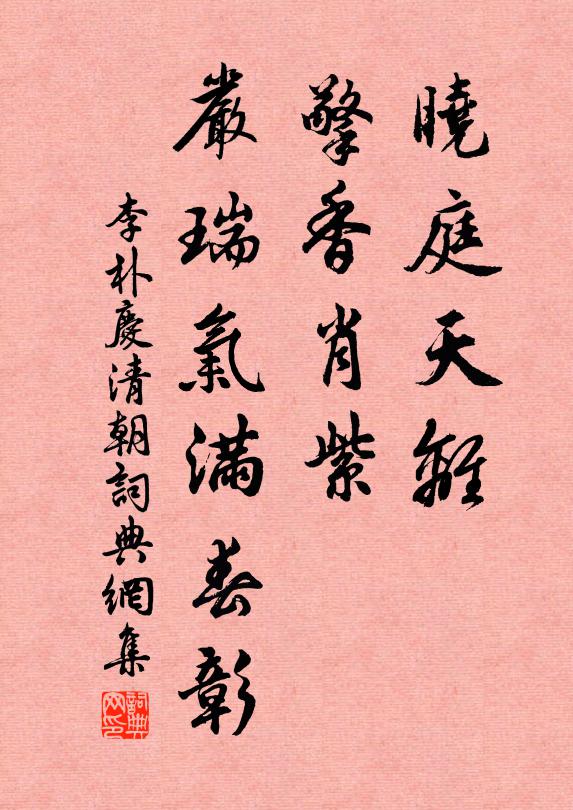 曉庭天離
擎香肖紫
嚴瑞氣滿春彰
李朴慶清朝詞典網集
詞典網印